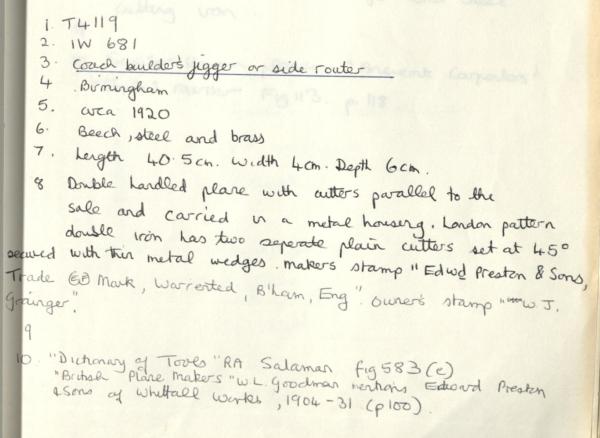 1. T4119
2. IW 681
3. Coach builder's jigger or side router
4 Birmingham
5. circa 1920
6. Beech, steel and brass
7. Length 40.5cm. Width 4cm. Depth 6cm.
8 Double handled plane with cutters parallel to the
sole and carried in a metal housing. London pattern
double iron has two seperate plain cutters set at 45°
secured with thin metal wedges. Makers stamp "Edwd Preston & Sons,
Trade Mark, Warrented, B'ham, Eng". Owner's stamp "W J.
Grainger".
9
10. "Dictionary of Tools" RA Salaman fig 583 (e)
"British Plane Makers" W.L. Goodman mentions Edward Preston
& Sons of Whittall Works, 1904-31 (p100).